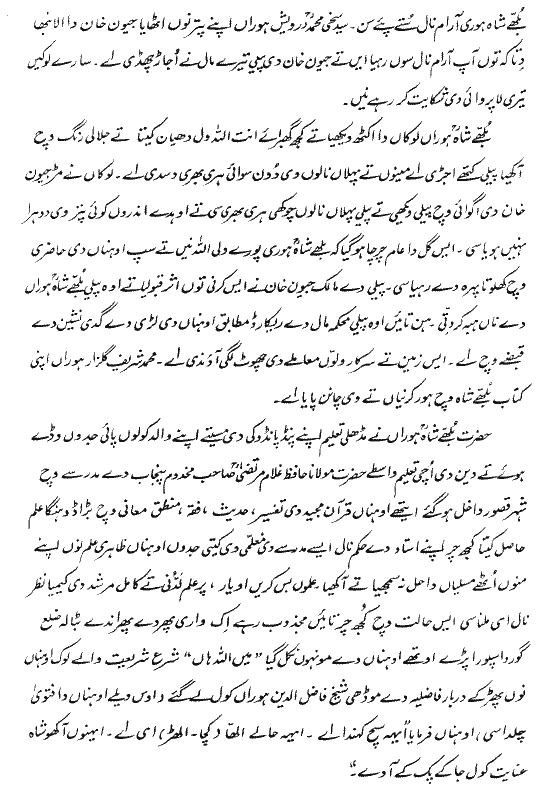 بُلھّے شاہ ہوری آرام نال سُتے پئے سن۔ سید سخی محمدؒ درویش ہوراں اپنے پتر نوں اٹھایا جیون خان دا الانبھا
دِتا کہ توں آپ آرام نال سوں رہیا ایں تے جیون خان دی پیلی تیرے مال نے اُجاڑ چھڈی اے۔ سارے لوکیں
تیری لاپروائی دی شکایت کر رہے نیں۔
بُلھّے شاہؒ ہوراں لوکاں دا اکٹھ ویکھیا تے کجھ گھبرائے انت اللہ ول دھیان کیتا تے جلالی رنگ وچ
آکھیا پیلی کتھے اجڑی اے مینوں تے پہلاں نالوں وی دُون سوائی ہری بھری دسدی اے۔ لوکاں نے مڑ جیون
خان دی اگوائی وچ پیلی ویکھی تے پیلی پہلاں نالوں چوکھی ہری بھری سی تے اوہدے اندروں کوئی پتر وی دوہرا
نہیں ہویا سی۔ ایس گل دا عام چرچا ہو گیا کہ بلھے شاہؒ ہوری پورے ولی اللہ نیں تے سپ اوہناں دی حاضری
وچ کھلوتا پہرہ دے رہیا سی۔ پیلی دے مالک جیون خان نے ایس کرنی توں اثر قبولیا تے اوہ پیلی بُلھّے شاہؒ ہوراں
دے ناں ہبہ کر دتی۔ ہن تائیں اوہ پیلی محکمہ مال دے ریکارڈ مطابق اوہناں دی لڑی دے گدی نشین دے
قبضے وچ اے۔ ایس زمین تے سرکار ولوں معاملے دی چھوٹ لگی آؤندی اے۔ محمد شریف گلزار ہوراں اپنی
کتاب بُلھّے شاہ وچ ہور کرنیاں تے وی چانن پایا اے۔
حضرت بُلھّے شاہؒ ہوراں نے مڈھلی تعلیم اپنے پنڈ پانڈوکی دی مسیتے اپنے والد کولوں پائی جدوں وڈے
ہوئے تے دین دی اُچی تعلیم واسطے حضرت مولانا حافظ غلام مرتضیٰؒ صاحب مخدوم پنجاب دے مدرسے وچ
شہر قصور داخل ہو گئے ایتھے اوہناں قرآن مجید دی تفسیر، حدیث، فقہ، منطق معانی وچ بڑا ڈوہنگا علم
حاصل کیتا کجھ چر اپنے استاد دے حکم نال ایسے مدرسے دی معلمی وی کیتی جدوں اوہناں ظاہری علم نوں اپنے
منوں اُٹھے مسلیاں دا حل نہ سمجھیا تے آکھیا علموں بس کریں او یار، پر علم لدُنی تے کامل مرشد دی کیمیا نظر
نال ای ملنا سی ایس حالت وچ کُجھ چر تائیں مجذوب رہے اِک واری پھردے پھراندے بٹالہ ضلع
گورداسپور اپڑے اوتھے اوہناں دے مونہوں نکل گیا ”میں اللہ ہاں“ شرع شریعت والے لوک اوہناں
نوں پھڑ کے دربار فاضلیہ دے موڈھی شیخ فاضل الدین ہوراں کول لے گئے۔ اوس ویلے اوہناں دا فتویٰ
چلدا سی، اوہناں فرمایا ”ایہہ سچ کہندا اے۔ ایہہ حالے الھّا (کچا۔ الھڑ) ای اے۔ ایہنوں آکھو شاہ
عنایت کول جا کے پک کے آوے۔“